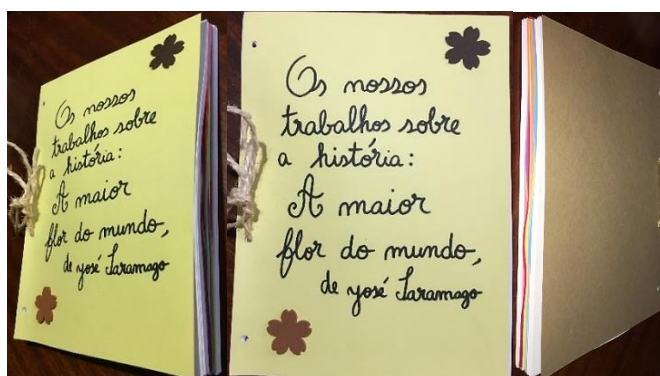 Os nossos
trabalhos sobre
a história:
A maior
flor do mundo,
de José Saramago
Os nossos
trabalhos sobre
a história:
A maior
flor do mundo,
de José Saramago